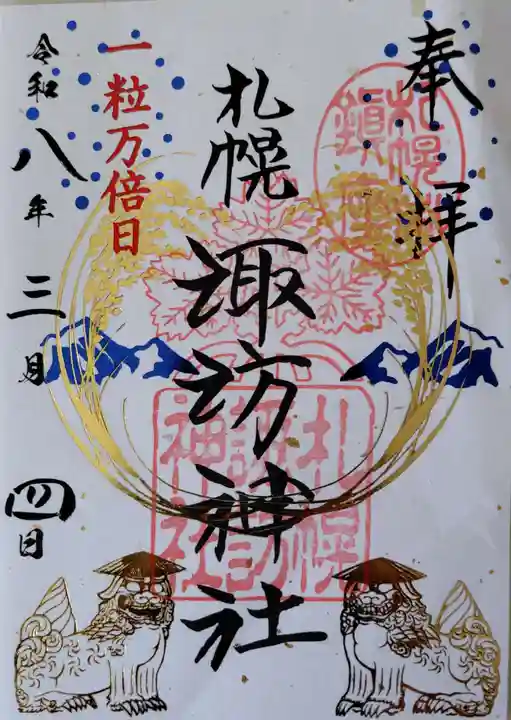 奉拝
札幌
鎮座
札幌諏訪神社
札幌
諏訪
神社
一粒万倍日
令和八年三月四日